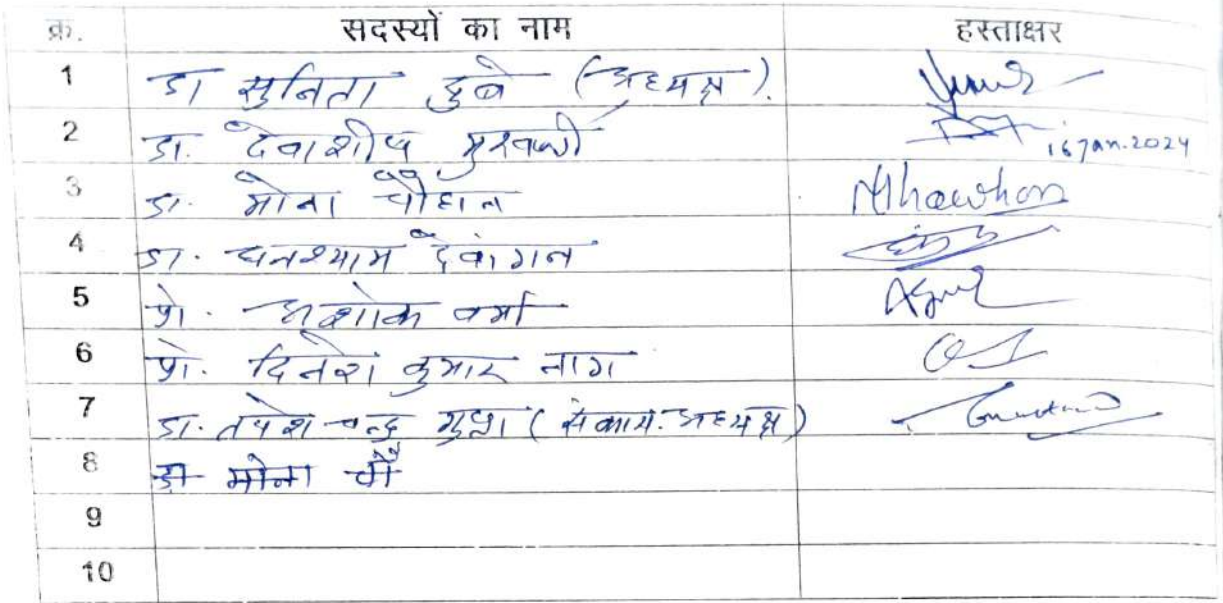 क्र. सदस्यों का नाम हस्ताक्षर
1 डा सुनिता दुबे (अध्यक्ष).
2 डा. देवाशीष मुखर्जी 16 Jan. 2024
3 डा. मोना चौहान MChawhan
4 डा. घनश्याम देवांगन
5 प्रो. अशोक वर्मा
6 प्रो. दिनेश कुमार नाग
7 डा. तपेश चन्द्र गुप्ता (संकाय. अध्यक्ष)
8 डा मोना चौ
9
10